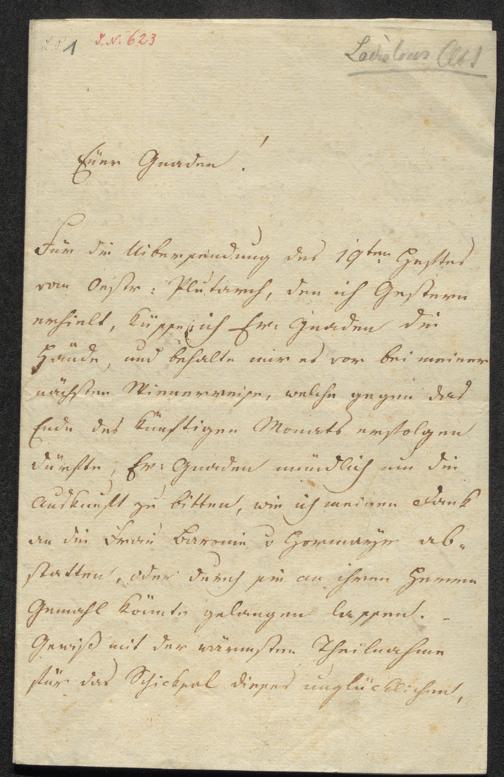 1 I.N. 623
Ladislaus
Euer Gnaden!
Für die Uibersendung des 19ten Heftes
vom Oestr: Plutarch, den ich Gestern
erhielt, küsse ich Er: Gnaden die
Hände, und behalte mir es vor bei meiner
nächsten Wienerreise, welche gegen das
Ende des künftigen Monats erfolgen
dürfte, Er: Gnaden mündlich um die
Auskunft zu bitten, wie ich meinen Dank
an die Frau Baronin v Hormayr ab-
statten, oder durch sie an ihren Herrn
Gemahl könnte gelangen lassen. –
Gewiß mit der wärmsten Theilnahme
für das Schicksal dieses unglücklichen,